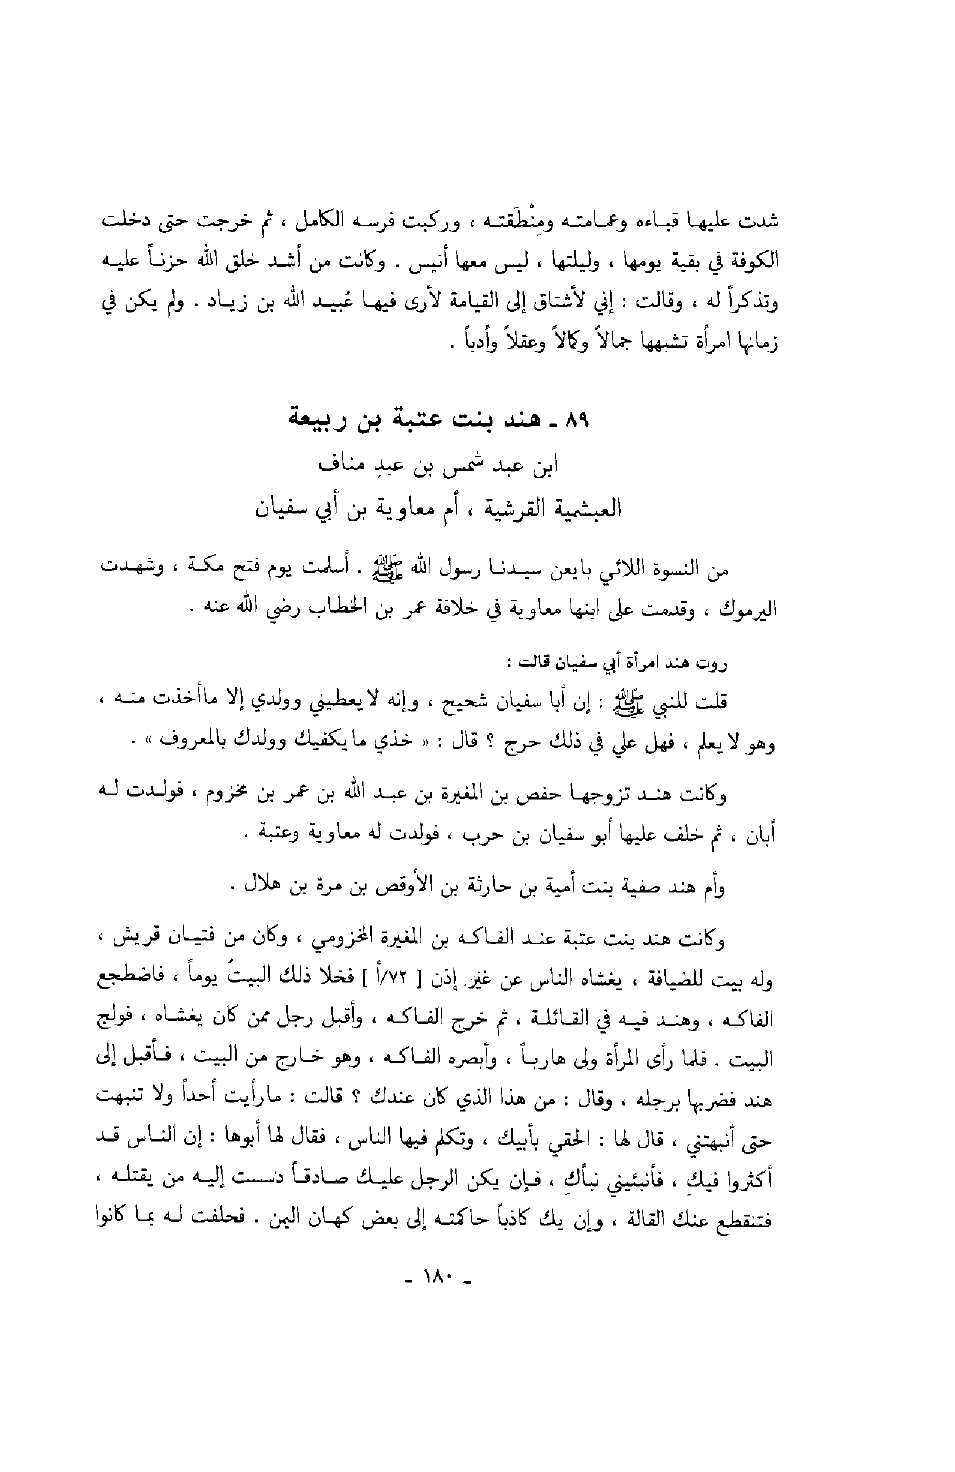 شدت عليها قباءه وعمامته ومِنْطَقته ، وركبت فرسه الكامل ، ثم خرجت حتى دخلت
الكوفة في بقية يومها ، وليلتها ، ليس معها أنيس . وكانت من أشد خلق الله حزناً عليه
وتذكراً له ، وقالت : إني لأشتاق إلى القيامة لأرى فيها عُبيد الله بن زياد . ولم يكن في
زمانها امرأة تشبهها جمالاً وكمالاً وعقلاً وأدباً .
٨٩ ـ هند بنت عتبة بن ربيعة
ابن عبد شمس بن عبدِ مناف
العبشمية القرشية ، أم معاوية بن أبي سفيان
من النسوة اللائي بايعن سيدنا رسول الله ﷺ . أسلمت يوم فتح مكة ، وشهدت
اليرموك ، وقدمت على ابنها معاوية في خلافة عمر بن الخطاب رضي الله عنه .
روت هند امرأة أبي سفيان قالت :
قلت للنبي ﷺ : إن أبا سفيان شحيح ، وإنه لا يعطيني وولدي إلا ماأخذت منه ،
وهو لا يعلم ، فهل علي في ذلك حرج ؟ قال : « خذي مايكفيك وولدك بالمعروف » .
وكانت هند تزوجها حفص بن المغيرة بن عبد الله بن عمر بن مخزوم ، فولدت له
أبان ، ثم خلف عليها أبو سفيان بن حرب ، فولدت له معاوية وعتبة .
وأم هند صفية بنت أمية بن حارثة بن الأوقص بن مرة بن هلال .
وكانت هند بنت عتبة عند الفاكه بن المغيرة المخزومي ، وكان من فتيان قريش ،
وله بيت للضيافة ، يغشاه الناس عن غير إذن [ ٧٢/أ ] فخلا ذلك البيتُ يوماً ، فاضطجع
الفاكه ، وهند فيه في القائلة ، ثم خرج الفاكه ، وأقبل رجل ممن كان يغشاه ، فولج
البيت . فلما رأى المرأة ولى هارباً ، وأبصره الفاكه ، وهو خارج من البيت ، فأقبل إلى
هند فضربها برجله ، وقال : من هذا الذي كان عندك ؟ قالت : مارأيت أحداً ولا تنبهت
حتى أنبهتني ، قال لها : الحقي بأبيك ، وتكلم فيها الناس ، فقال لها أبوها : إن الناس قد
أكثروا فيكِ ، فأنبئيني نبأكِ ، فإن يكن الرجل عليك صادقاً دسست إليه من يقتله ،
فتنقطع عنك القالة ، وإن يك كاذباً حاكمته إلى بعض كهان اليمن . فحلفت له بما كانوا
ـ ١٨٠ ـ